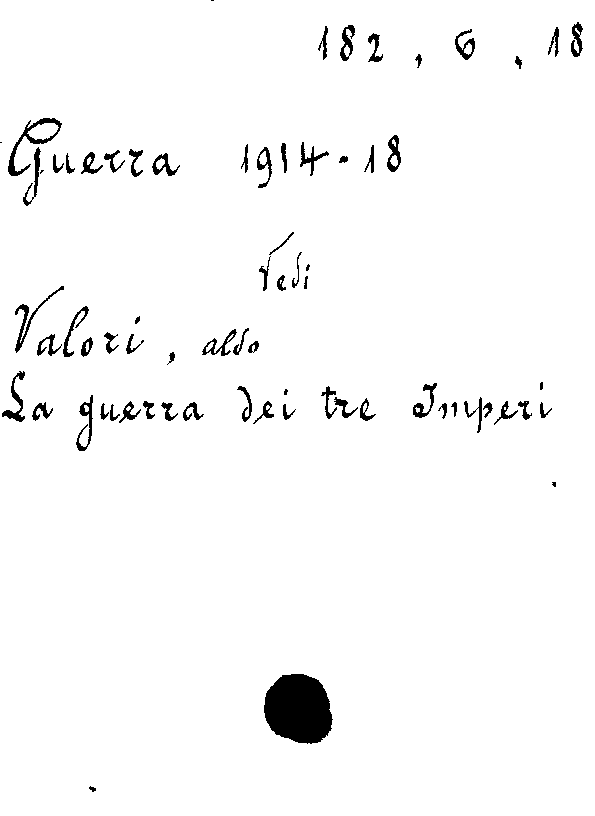 182 . 6 . 18
Guerra 1914-18
Vedi
Valori, aldo
La guerra dei tre Imperi